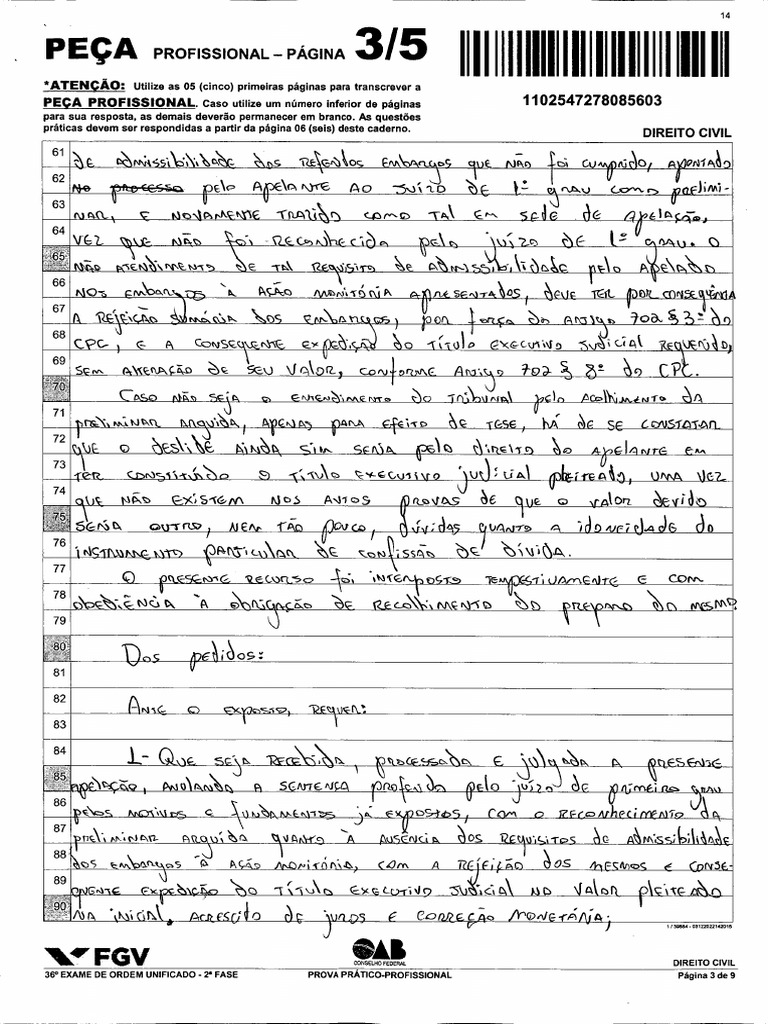 14
PEÇA PROFISSIONAL – PÁGINA 3/5
*ATENÇÃO: Utilize as 05 (cinco) primeiras páginas para transcrever a
PEÇA PROFISSIONAL. Caso utilize um número inferior de páginas
para sua resposta, as demais deverão permanecer em branco. As questões
práticas devem ser respondidas a partir da página 06 (seis) deste caderno.
1102547278085603
DIREITO CIVIL
61 de admissibilidade dos referidos embargos que não foi cumprido, apontado
62 no processo pelo apelante ao juízo de 1º grau como prelimi-
63 nar, e novamente trazido como tal em sede de apelação,
64 vez que não foi reconhecida pelo juízo de 1º grau. O
65 não atendimento de tal requisito de admissibilidade pelo apelado
66 nos embargos à ação monitória apresentados, deve ter por consequência
67 a rejeição sumária dos embargos, por força do artigo 702 § 3º do
68 CPC, e a consequente expedição do título executivo judicial requerido,
69 sem alteração de seu valor, conforme Artigo 702 § 8º do CPC.
70 Caso não seja o entendimento do Tribunal pelo acolhimento da
71 preliminar arguida, apenas para efeito de tese, há de se constatar
72 que o deslide ainda sim seria pelo direito do apelante em
73 ter constituído o título executivo judicial pleiteado, uma vez
74 que não existem nos autos provas de que o valor devido
75 seria outro, nem tão pouco, dúvidas quanto a idoneidade do
76 instrumento particular de confissão de dívida.
77 O presente recurso foi interposto tempestivamente e com
78 obediência à obrigação de recolhimento do preparo do mesmo.
79
80 Dos pedidos:
81
82 Ante o exposto, requer:
83
84 1- Que seja recebida, processada e julgada a presente
85 apelação, anulando a sentença proferida pelo juízo de primeiro grau
86 pelos motivos e fundamentos já expostos, com o reconhecimento da
87 preliminar arguida quanto à ausência dos requisitos de admissibilidade
88 dos embargos à ação monitória, com a rejeição dos mesmos e conse-
89 quente expedição do título executivo judicial no valor pleiteado
90 na inicial, acrescito de juros e correção monetária;
1 / 39884 - 03122022142015
FGV
OAB
CONSELHO FEDERAL
DIREITO CIVIL
36º EXAME DE ORDEM UNIFICADO - 2ª FASE
PROVA PRÁTICO-PROFISSIONAL
Página 3 de 9